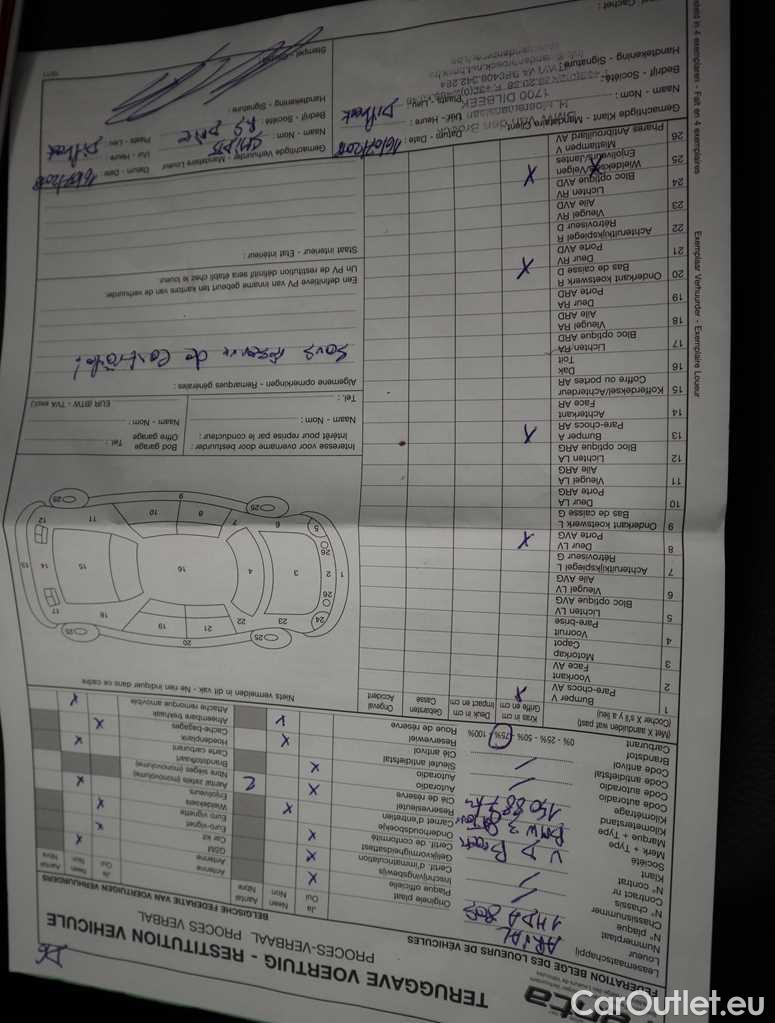 TERUGGAVE VOERTUIG - RESTITUTION VEHICULE
PROCES-VERBAAL PROCES VERBAL
FEDERATION BELGE DES LOUEURS DE VEHICULES
BELGISCHE FEDERATIE VAN VOERTUIGEN VERHUURDERS
Leasemaatschappij
Loueur
Nummerplaat
N° plaque
1 HDA 803
Chassisnummer
N° chassis
N° contract
N° contrat
Klant
Société
Merk + Type
Marque + Type
BMW 3
Kilometerstand
Kilométrage
150.887 km
Code autoradio
Code autoradio
Code antidiefstal
Code antivol
Brandstof
Carburant
0% - 25% - 50% - 75% - 100%
Ja Neen Aantal
Oui Non Nbre
Originele plaat
Plaque officielle
Inschrijvingsbewijs
Certif. d'immatriculation
Gelijkvormigheidsattest
Certif. de conformité
Onderhoudsboekje
Carnet d'entretien
Reservesleutel
Clé de réserve
Autoradio
Autoradio
Sleutel antidiefstal
Clé antivol
Reservewiel
Roue de réserve
Ja Neen Aantal
Oui Non Nbre
Antenne
Antenne
GSM
Car kit
Euro-vignet
Euro vignette
Wieldeksels
Enjoliveurs
Aantal zetels (monovolume)
Nbre sièges (monovolume)
2
Brandstofkaart
Carte carburant
Hoedenplank
Cache-bagages
Afneembare trekhaak
Attache remorque amovible
(Met X aanduiden wat past)
(Cocher X s'il y a lieu)
Kras in cm
Griffe en cm
Deuk in cm
Impact en cm
Gebarsten
Cassé
Ongeval
Accident
Niets vermelden in dit vak - Ne rien indiquer dans ce cadre
1 Bumper V
Pare-chocs AV
2 Voorkant
Face AV
3 Motorkap
Capot
4 Voorruit
Pare-brise
5 Lichten LV
Bloc optique AVG
6 Vleugel LV
Aile AVG
7 Achteruitkijkspiegel L
Rétroviseur G
8 Deur LV
Porte AVG
9 Onderkant koetswerk L
Bas de caisse G
10 Deur LA
Porte ARG
11 Vleugel LA
Aile ARG
12 Lichten LA
Bloc optique ARG
13 Bumper A
Pare-chocs AR
14 Achterkant
Face AR
15 Kofferdeksel/Achterdeur
Coffre ou portes AR
16 Dak
Toit
17 Lichten RA
Bloc optique ARD
18 Vleugel RA
Aile ARD
19 Deur RA
Porte ARD
20 Onderkant koetswerk R
Bas de caisse D
21 Deur RV
Porte AVD
22 Achteruitkijkspiegel R
Rétroviseur D
23 Vleugel RV
Aile AVD
24 Lichten RV
Bloc optique AVD
25 Wieldeksels/Velgen
Enjoliveurs/Jantes
26 Mistlampen V
Phares Antibrouillard AV
Interesse voor overname door bestuurder :
Intérêt pour reprise par le conducteur :
Naam - Nom :
Tel. :
Bod garage
Offre garage
Tel.
Naam - Nom :
EUR (BTW - TVA excl.)
Algemene opmerkingen - Remarques générales :
Sous réserve de contrôle !
Een definitieve PV van inname gebeurt ten kantore van de verhuurder.
Un PV de restitution définitif sera établi chez le loueur.
Staat interieur - Etat intérieur :
Gemachtigde Klant - Mandataire Client
Datum - Date :
Naam - Nom :
Uur - Heure :
Bedrijf - Société :
Plaats - Lieu :
Dilbeek
Handtekening - Signature :
1700 DILBEEK
Gemachtigde Verhuurder - Mandataire Loueur
Datum - Date :
Naam - Nom :
Uur - Heure :
Bedrijf - Société :
Plaats - Lieu :
Dilbeek
Handtekening - Signature :
Stempel - Cachet :
Exemplaar Verhuurder - Exemplaire Loueur
Fait en 4 exemplaires
CarOutlet.eu